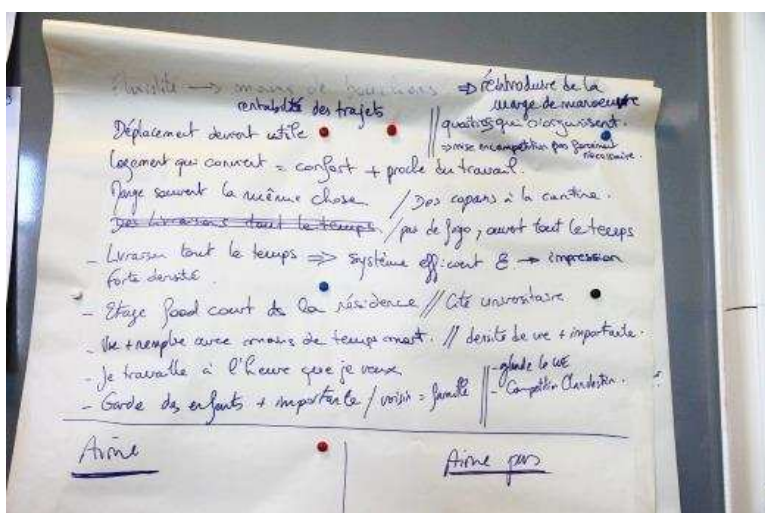 Fluidité → moins de bouchons ⇒ réintroduire de la
marge de manoeuvre
rentabilité des trajets
quartiers qui s'organisent.
Déplacement devient utile
⇒ mise en compétition pas forcément
nécessaire.
Logement qui convient = confort + proche du travail.
Mange souvent la même chose / Des copains à la cantine.
Des livraisons tout le temps / pas de frigo, ouvert tout le temps
- Livraison tout le temps ⇒ système efficient → impression
forte densité.
- Etage food court ds la résidence // Cité universitaire
- Vie + remplie avec moins de temps mort. // densité de vie + importante.
- Je travaille à l'heure que je veux
- glande le WE
- Garde des enfants + importante / voisin = famille
- Compétition Clandestin.
Aime
Aime pas